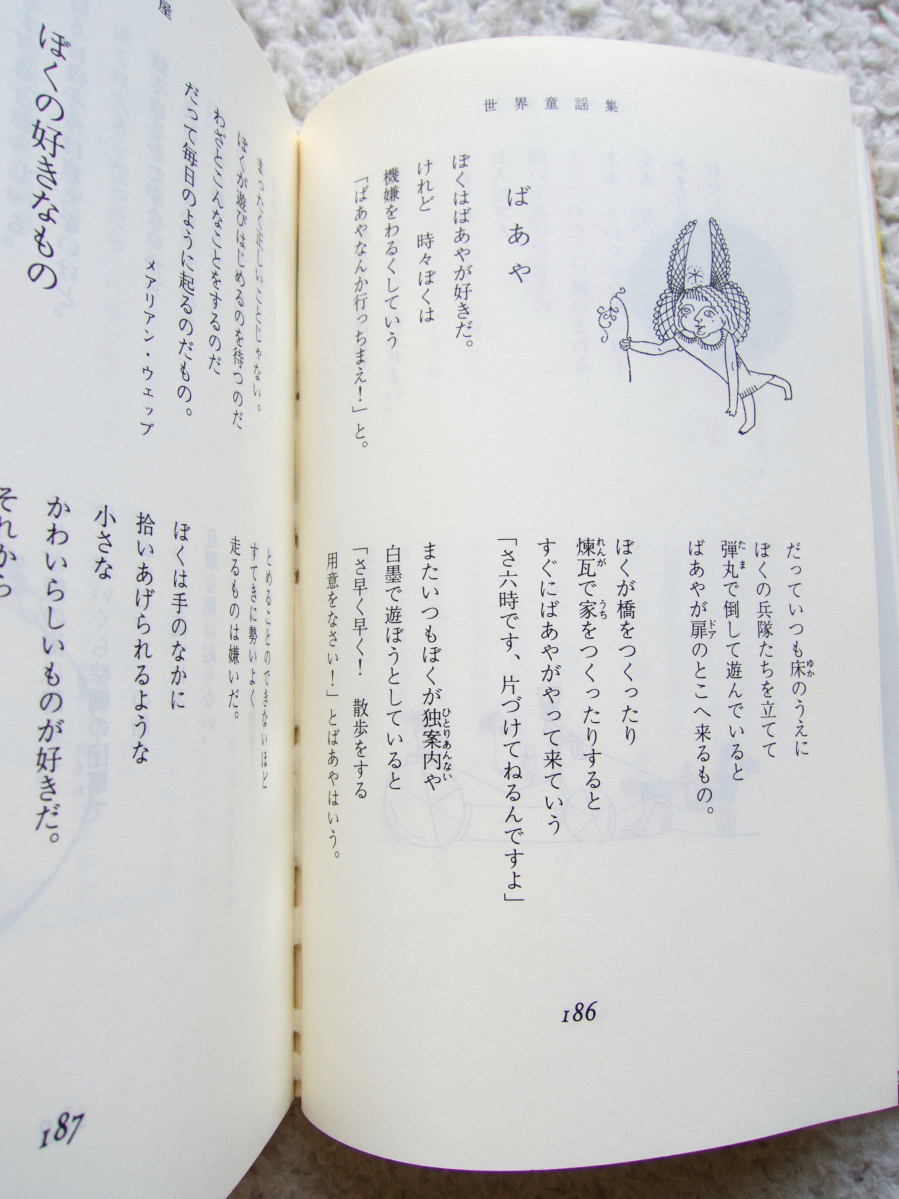 世界童謡集
ばあや
ぼくはばあやが好きだ。
けれど 時々ぼくは
機嫌をわるくしていう
「ばあやなんか行っちまえ！」と。
だっていつも床のうえに
ゆか
ぼくの兵隊たちを立てて
弾丸で倒して遊んでいると
たま
ばあやが扉のとこへ来るもの。
ドア
ぼくが橋をつくったり
煉瓦で家をつくったりすると
れんが
うち
すぐにばあやがやって来ていう
「さ六時です、片づけてねるんですよ」
またいつもぼくが独案内や
ひとりあんない
白墨で遊ぼうとしていると
「さ早く早く！ 散歩をする
用意をなさい！」とばあやはいう。
186
屋
まったく正しいことじゃない。
ぼくが遊びはじめるのを待つのだ
わざとこんなことをするのだ
だって毎日のように起るのだもの。
メアリアン・ウェッブ
ぼくの好きなもの
とめることのできないほど
すてきに勢いよく
走るものは嫌いだ。
ぼくは手のなかに
拾いあげられるような
小さな
かわいらしいものが好きだ。
それから
187